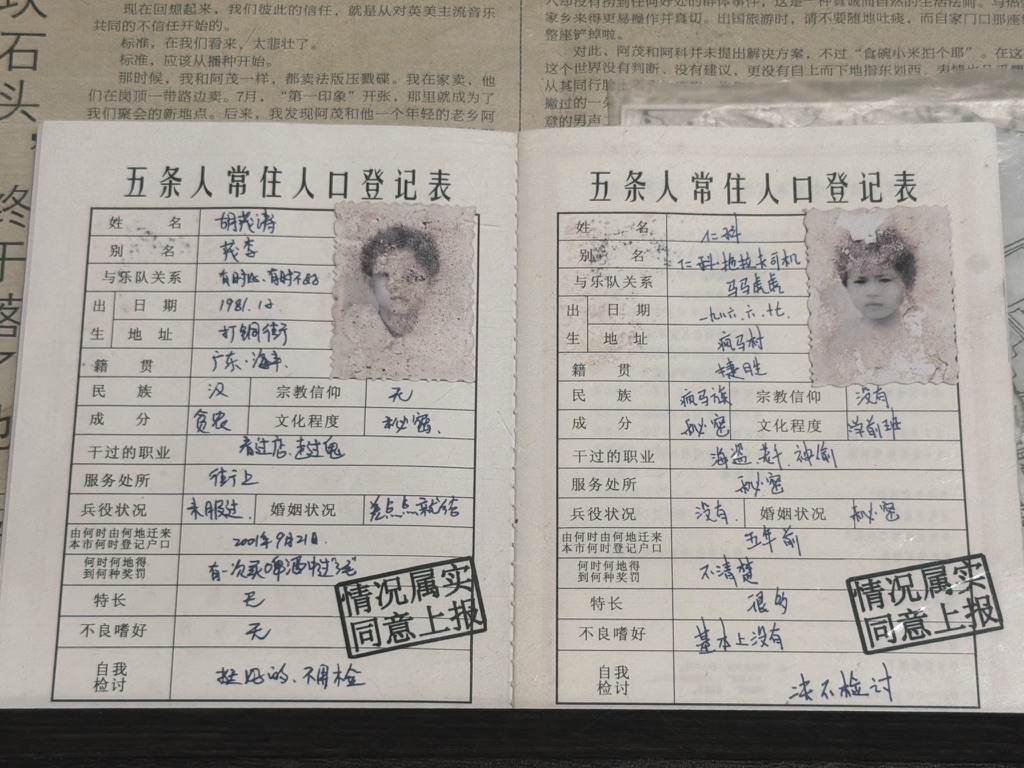 现在回想起来，我们彼此的信任，就是从对英美主流音乐
共同的不信任开始的。
标准，在我们看来，太悲壮了。
标准，应该从播种开始。
那时候，我和阿茂一样，都卖法版压戳碟。我在家卖，他
们在岗顶一带路边卖。7月，“第一印象”开张，那里就成为了
我们聚会的新地点。后来，我发现阿茂和他一个年轻的老乡阿
家乡来得更易操作并真切。出国旅游时，请不要随地吐痰，而自家门口那座
整座铲掉啦。
对此，阿茂和阿科并未提出解决方案，不过“食碗小米扫个耶”。在这
这个世界没有判断、没有建议，更没有自上而下地指东划西，
从其同行
撇过的一
意的男声
石头
终于落之地
五条人常住人口登记表
姓名 胡茂涛
别名 茂李
与乐队关系 有时好.有时不好
出生 日期 1981.12
地址 打铜街
籍贯 广东·海丰
民族 汉 宗教信仰 无
成分 贫农 文化程度 秘密.
干过的职业 看过店.赶过鬼
服务处所 街上
兵役状况 未服过. 婚姻状况 差点点就结
由何时由何地迁来本市何时登记户口 2001年9月21日.
何时何地得到何种奖罚 有一次买啤酒中过3毛
特长 无
不良嗜好 无
自我检讨 挺好的.不用检
情况属实
同意上报
五条人常住人口登记表
姓名 仁科
别名 仁科·拖拉卡司机
与乐队关系 马马虎虎
出生 日期 一九八六.六.廿七.
地址 疯马村
籍贯 捷胜
民族 疯马族 宗教信仰 没有
成分 秘密 文化程度 学前班
干过的职业 海盗. 神偷
服务处所 秘密
兵役状况 没有. 婚姻状况 秘密
由何时由何地迁来本市何时登记户口 五年前
何时何地得到何种奖罚 不清楚
特长 很多
不良嗜好 基本上没有
自我检讨 决不检讨
情况属实
同意上报